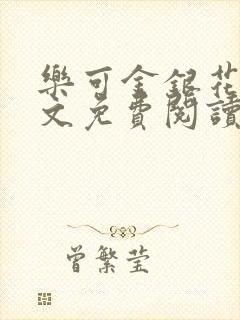 樂可金銀花
文免費閱讀
曾繁莹